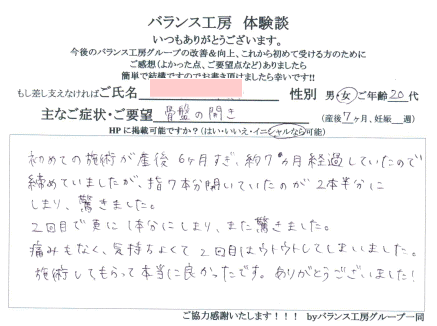 バランス工房 体験談
いつもありがとうございます。
今後のバランス工房グループの改善&向上、これから初めて受ける方のために
ご感想(よかった点、ご要望点など)ありましたら
簡単で結構ですのでお書き頂けましたら幸いです!!
もし差し支えなければご氏名 性別 男・女 ご年齢20代
主なご症状・ご要望 骨盤の開き (産後7ヶ月、妊娠 週)
HPに掲載可能ですか?(はい・いいえ・イニシャルなら可能)
初めての施術が産後6ヶ月すぎ、約7ヶ月経過していたので
締めていましたが、指7本分開いていたのが2本半分に
しまり、驚きました。
2回目で更に1本分にしまり、また驚きました。
痛みもなく、気持ちよくて2回目はウトウトしてしまいました。
施術してもらって本当に良かったです。ありがとうございました!
ご協力感謝いたします!!! byバランス工房グループ一同